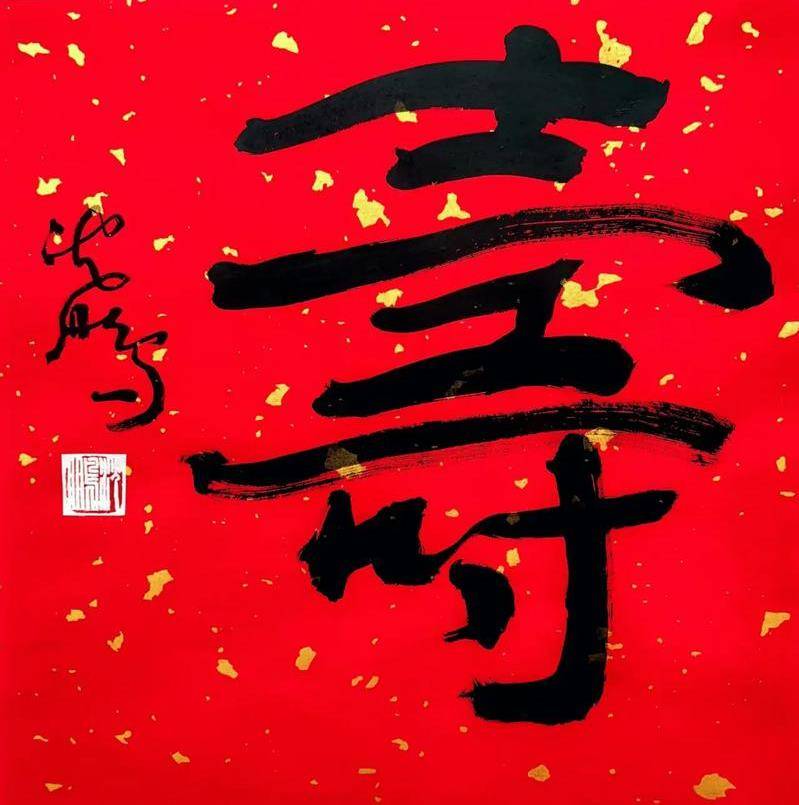 壽
沈鵬